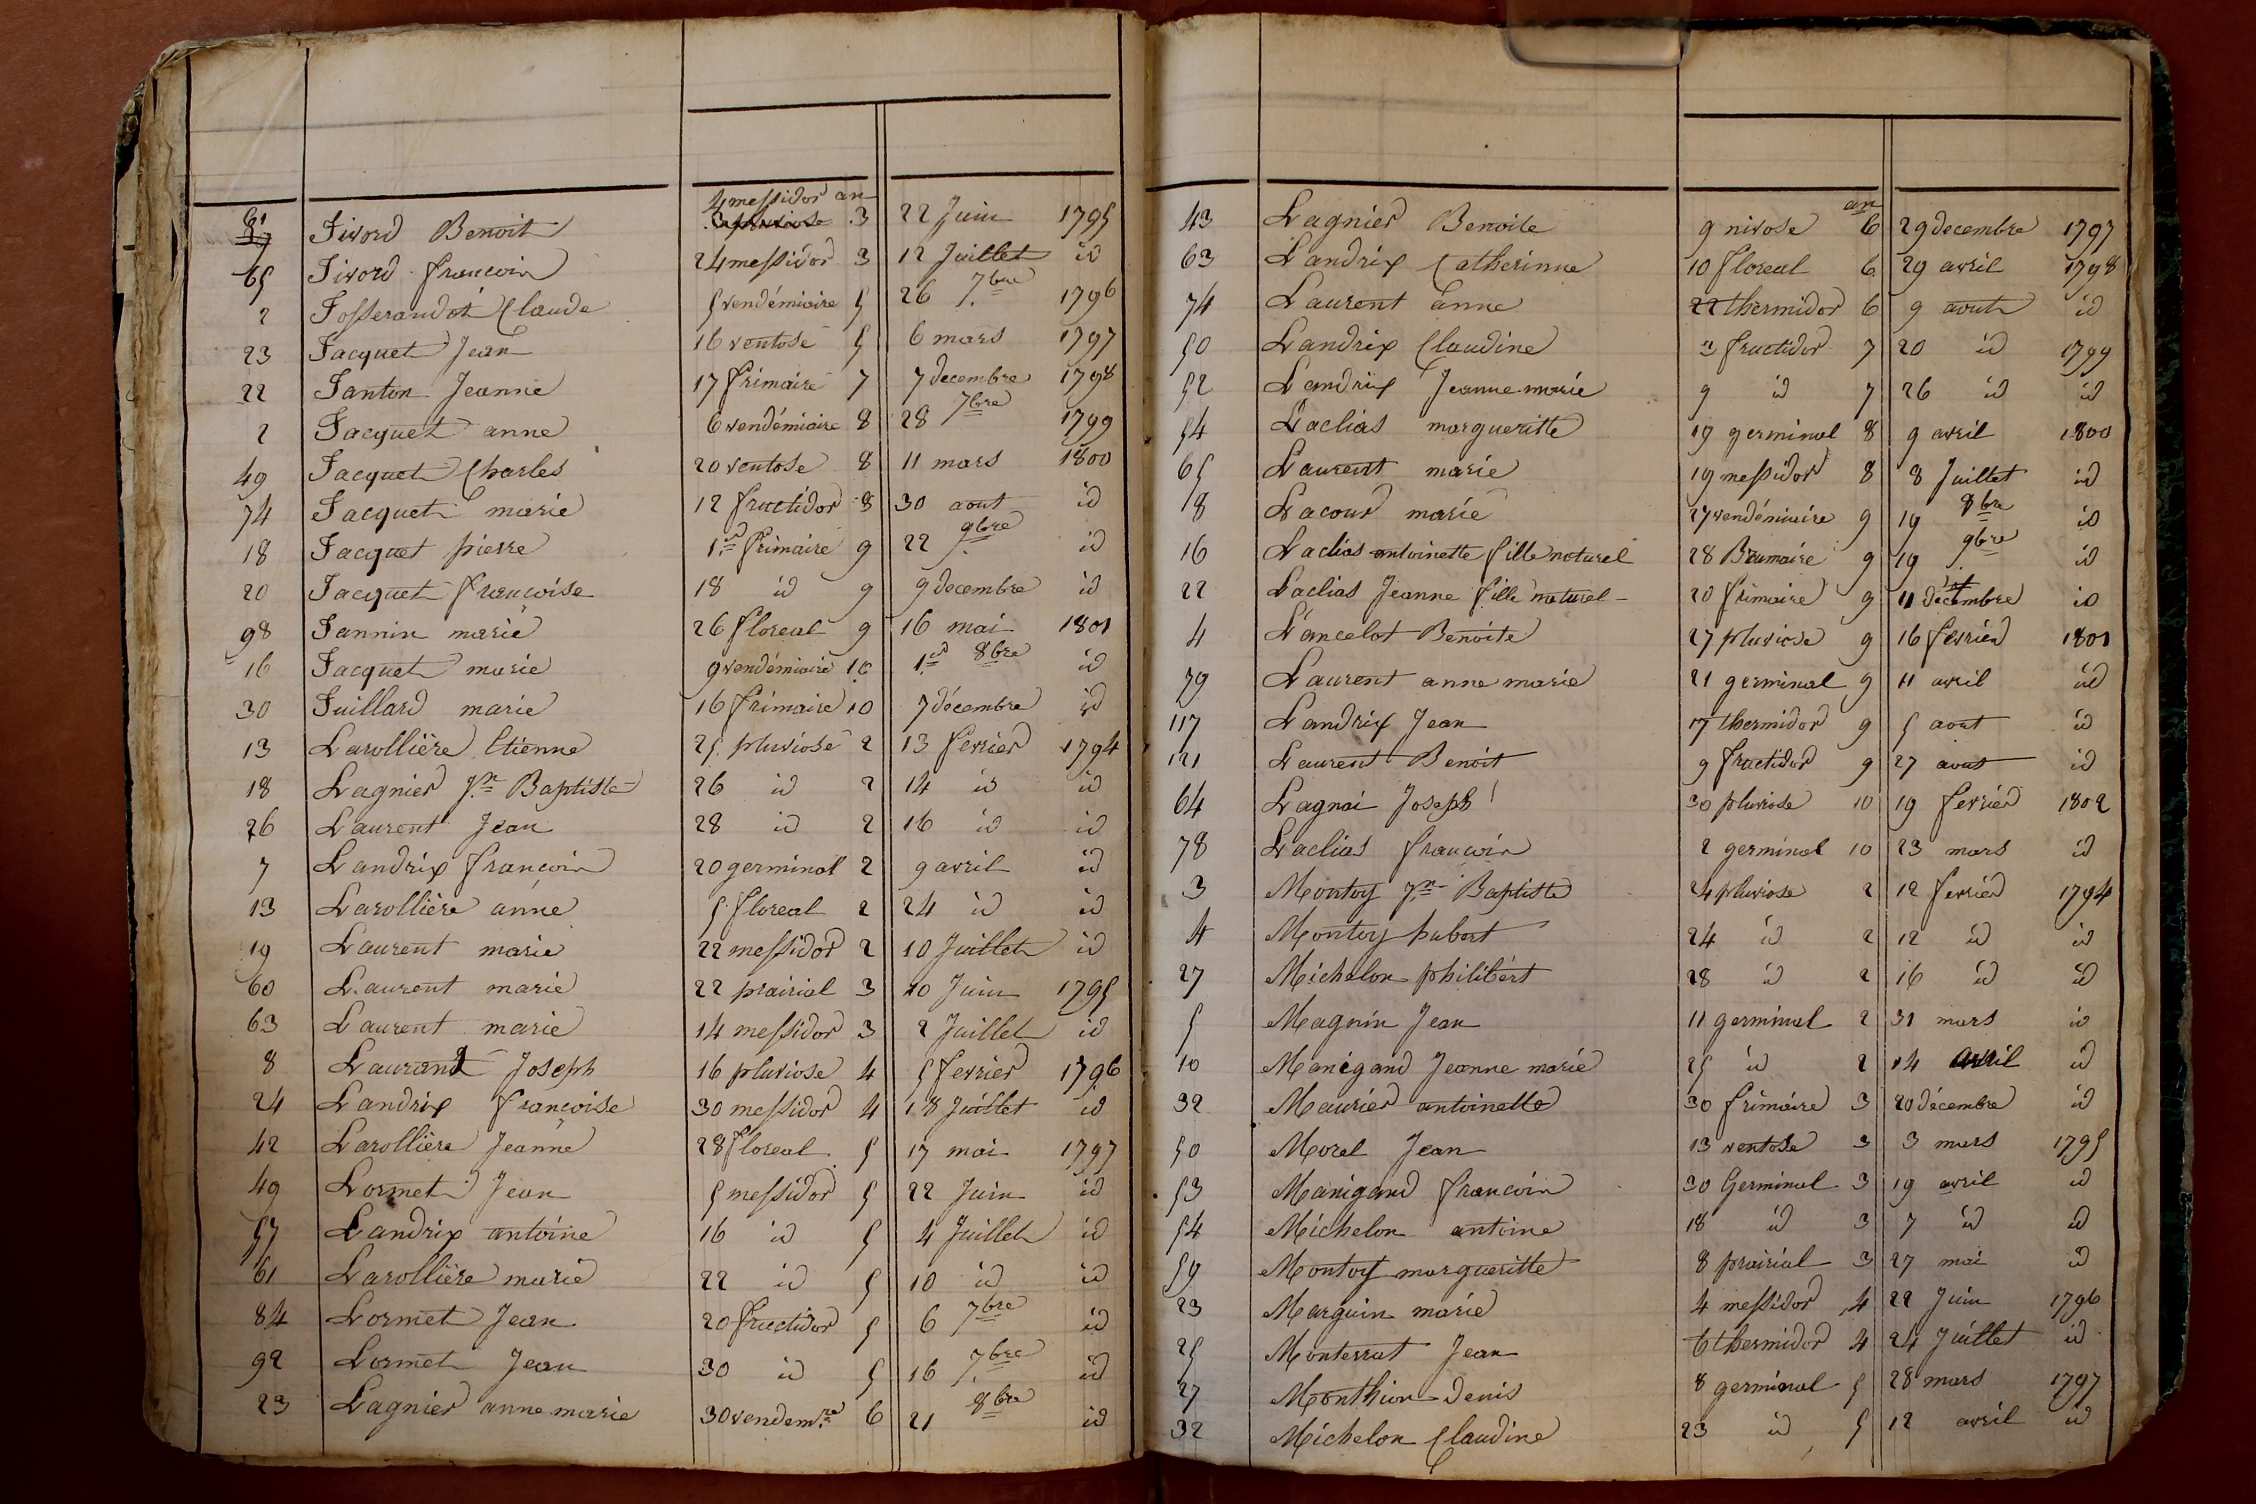 61 Jivord Benoit 4 messidor an 3 22 Juin 1795
65 Jivord francoin 24 messidor 3 12 Juillet id
2 Josserandot Claude 5 vendémiaire 5 26 7bre 1796
23 Jacquet Jean 16 ventose 5 6 mars 1797
22 Janton Jeanne 17 frimaire 7 7 decembre 1798
2 Jacquet anne 6 vendémiaire 8 28 7bre 1799
49 Jacquet Charles 20 ventose 8 11 mars 1800
74 Jacquet marie 12 fructidor 8 30 aout id
18 Jacquet pierre 1.er frimaire 9 22 9bre id
20 Jacquet francoise 18 id 9 9 decembre id
98 Jannin marie 26 floreal 9 16 mai 1801
16 Jacquet marie 9 vendémiaire 10 1.er 8bre id
30 Juillard marie 16 frimaire 10 7 décembre id
13 Larollière Etienne 25 pluviose 2 13 fevrier 1794
18 Lagnier Jn Baptiste 26 id 2 14 id id
26 Laurent Jean 28 id 2 16 id id
7 Landrix françoin 20 germinal 2 9 avril id
13 Larollière anne 5 floreal 2 24 id id
19 Laurent marie 22 messidor 2 10 Juillet id
60 Laurent marie 22 prairial 3 10 Juin 1795
63 Laurent marie 14 messidor 3 2 Juillet id
8 Laurand Joseph 16 pluviose 4 5 fevrier 1796
24 Landrix françoise 30 messidor 4 18 Juillet id
42 Larollière Jeanne 28 floreal 5 17 mai 1797
49 Lormet Jean 5 messidor 5 22 Juin id
57 Landrix antoine 16 id 5 4 Juillet id
61 Larollière marie 22 id 5 10 id id
84 Lormet Jean 20 fructidor 5 6 7bre id
92 Lormet Jean 30 id 5 16 7bre id
23 Lagnier anne marie 30 vendem.re 6 21 8bre id
43 Lagnier Benoite 9 nivose an 6 29 decembre 1797
63 Landrix Catherinne 10 floreal 6 29 avril 1798
74 Laurent anne 22 thermidor 6 9 aout id
50 Landrix Claudine 3 fructidor 7 20 id 1799
52 Landrix Jeanne marie 9 id 7 26 id id
54 Laclias margueritte 19 germinal 8 9 avril 1800
65 Laurent marie 19 messidor 8 8 Juillet id
18 Lacour marie 27 vendémiaire 9 19 8bre id
16 Laclias antoinette fille naturel 28 Brumaire 9 19 9bre id
22 Laclias Jeanne fille naturel 20 frimaire 9 11 decembre id
4 Lancelot Benoite 27 pluviose 9 16 fevrier 1801
79 Laurent anne marie 21 germinal 9 11 avril id
117 Landrix Jean 17 thermidor 9 5 aout id
121 Laurent Benoit 9 fructidor 9 27 aout id
64 Lagnai Joseph 30 pluviose 10 19 fevrier 1802
78 Laclias françoin 2 germinal 10 23 mars id
3 Montoy Jn Baptiste 24 pluviose 2 12 fevrier 1794
4 Montoy hubert 24 id 2 12 id id
27 Michelon philibert 28 id 2 16 id id
5 Magnin Jean 11 germinal 2 31 mars id
10 Manigand Jeanne marie 25 id 2 14 avril id
32 Maurier antoinette 30 frimaire 3 20 décembre id
50 Morel Jean 13 ventose 3 3 mars 1795
53 Manigand francoin 30 Germinal 3 19 avril id
54 Michelon antoine 18 id 3 7 id id
59 Montoy margueritte 8 prairial 3 27 mai id
23 Marguin marie 4 messidor 4 22 Juin 1796
25 Monterrat Jean 6 thermidor 4 24 Juillet id
27 Monthion Denis 8 germinal 5 28 mars 1797
32 Michelon Claudine 23 id 5 12 avril id